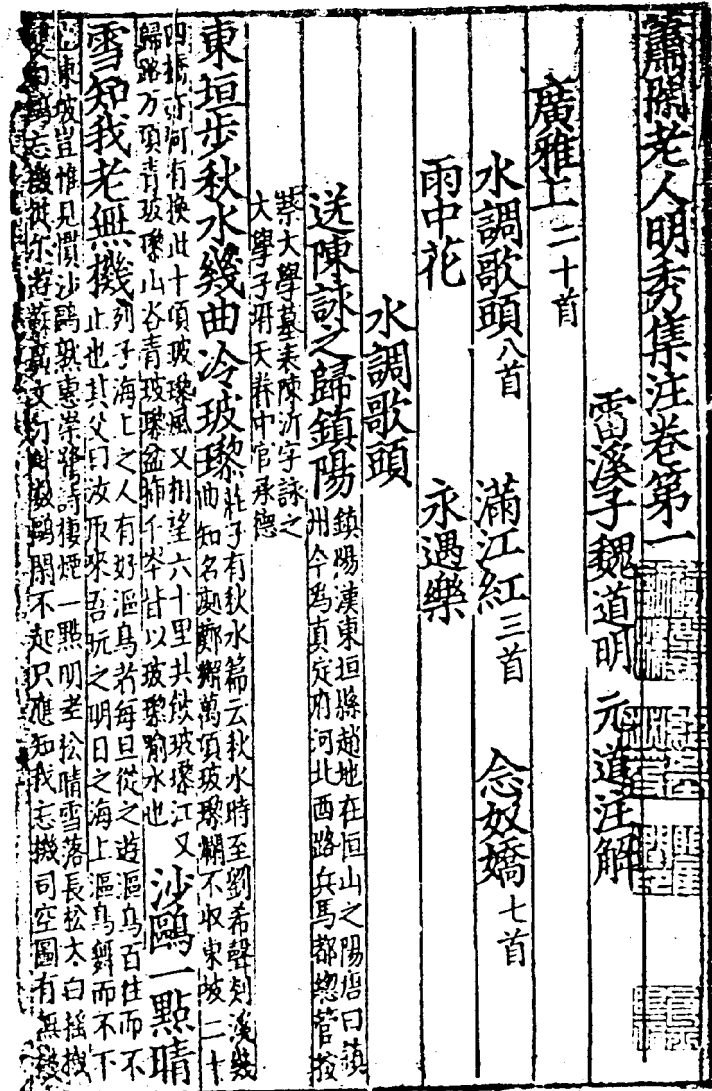 蕭閑老人明秀集注卷第一
雷溪子魏道明 元道注解
廣雅上二十首
水調歌頭八首 滿江紅三首 念奴嬌七首
雨中花 永遇樂
水調歌頭
送陳詠之歸鎮陽鎮陽漢東垣縣趙地在恒山之陽唐曰鎮
州今為真定府河北西路兵馬都總管
蔡大學墓表陳沂字詠之
大學子壻天眷中官承德
東垣步秋水幾曲冷玻瓈莊子有秋水篇云秋水時至劉希聲剡溪幾
曲知名鄭獬萬頃玻瓈不收東坡二十
四橋亦何有換此十頃玻瓈風又相望六十里共飲玻瓈江又
歸路万頃青玻瓈山谷青玻瓈盆插千岑皆以玻瓈喻水也
沙鷗一點晴
雪知我老無機列子海上之人有好漚鳥者每旦從之遊漚鳥百往而不
止也其父曰汝取來吾玩之明日之海上漚鳥舞而不下
東坡豈惟見慣沙鷗熟惠崇鷺詩棲煙一點明老松晴雪落長松太白搖
白鷗忘機從尔遊蘇 文 數鷗閑不起只應知我忘機司空圖有無